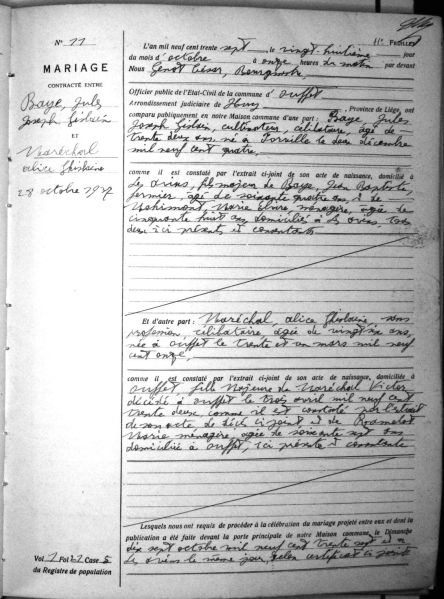 11e FEUILLET
N° 11
MARIAGE
CONTRACTÉ ENTRE
Baye, Jules
Joseph Ghislain
ET
Maréchal
Alice Ghislaine
28 octobre 1937
L'an mil neuf cent trente sept, le vingt-huitième jour
du mois d'octobre à onze heures du matin par devant
Nous Genot César, Bourgmestre
Officier public de l'Etat-Civil de la commune d'Ouffet
Arrondissement judiciaire de Huy, Province de Liége, ont
comparu publiquement en notre Maison commune d'une part : Baye, Jules
Joseph Ghislain, cultivateur, célibataire, âgé de
trente deux ans, né à Forville le deux décembre
mil neuf cent quatre,
comme il est constaté par l'extrait ci-joint de son acte de naissance, domicilié à
Les Avins, fils majeur de Baye, Jean Baptiste,
fermier, âgé de soixante quatre ans, et de
Marie ménagère, âgée de
cinquante huit ans, domiciliés à Les Avins, tous
deux ici présents et consentants
Et d'autre part : Maréchal, Alice Ghislaine, sans
profession, célibataire, âgée de vingt six ans,
née à Ouffet le trente et un mars mil neuf
cent onze,
comme il est constaté par l'extrait ci-joint de son acte de naissance, domiciliée à
Ouffet, fille Majeure de Maréchal Victor
décédé à Ouffet le trois avril mil neuf cent
trente deux, comme il est constaté par l'extrait
de son acte de décès ci-joint et de
Marie ménagère, âgée de soixante ans
domiciliée à Ouffet, ici présente et consentante
Lesquels nous ont requis de procéder à la célébration du mariage projeté entre eux et dont la
publication a été faite devant la porte principale de notre Maison commune, le Dimanche
dix sept octobre mil neuf cent trente sept et à
Les Avins le même jour, selon certificat ci-joint
Vol 1 Fol Case 5
du Registre de population